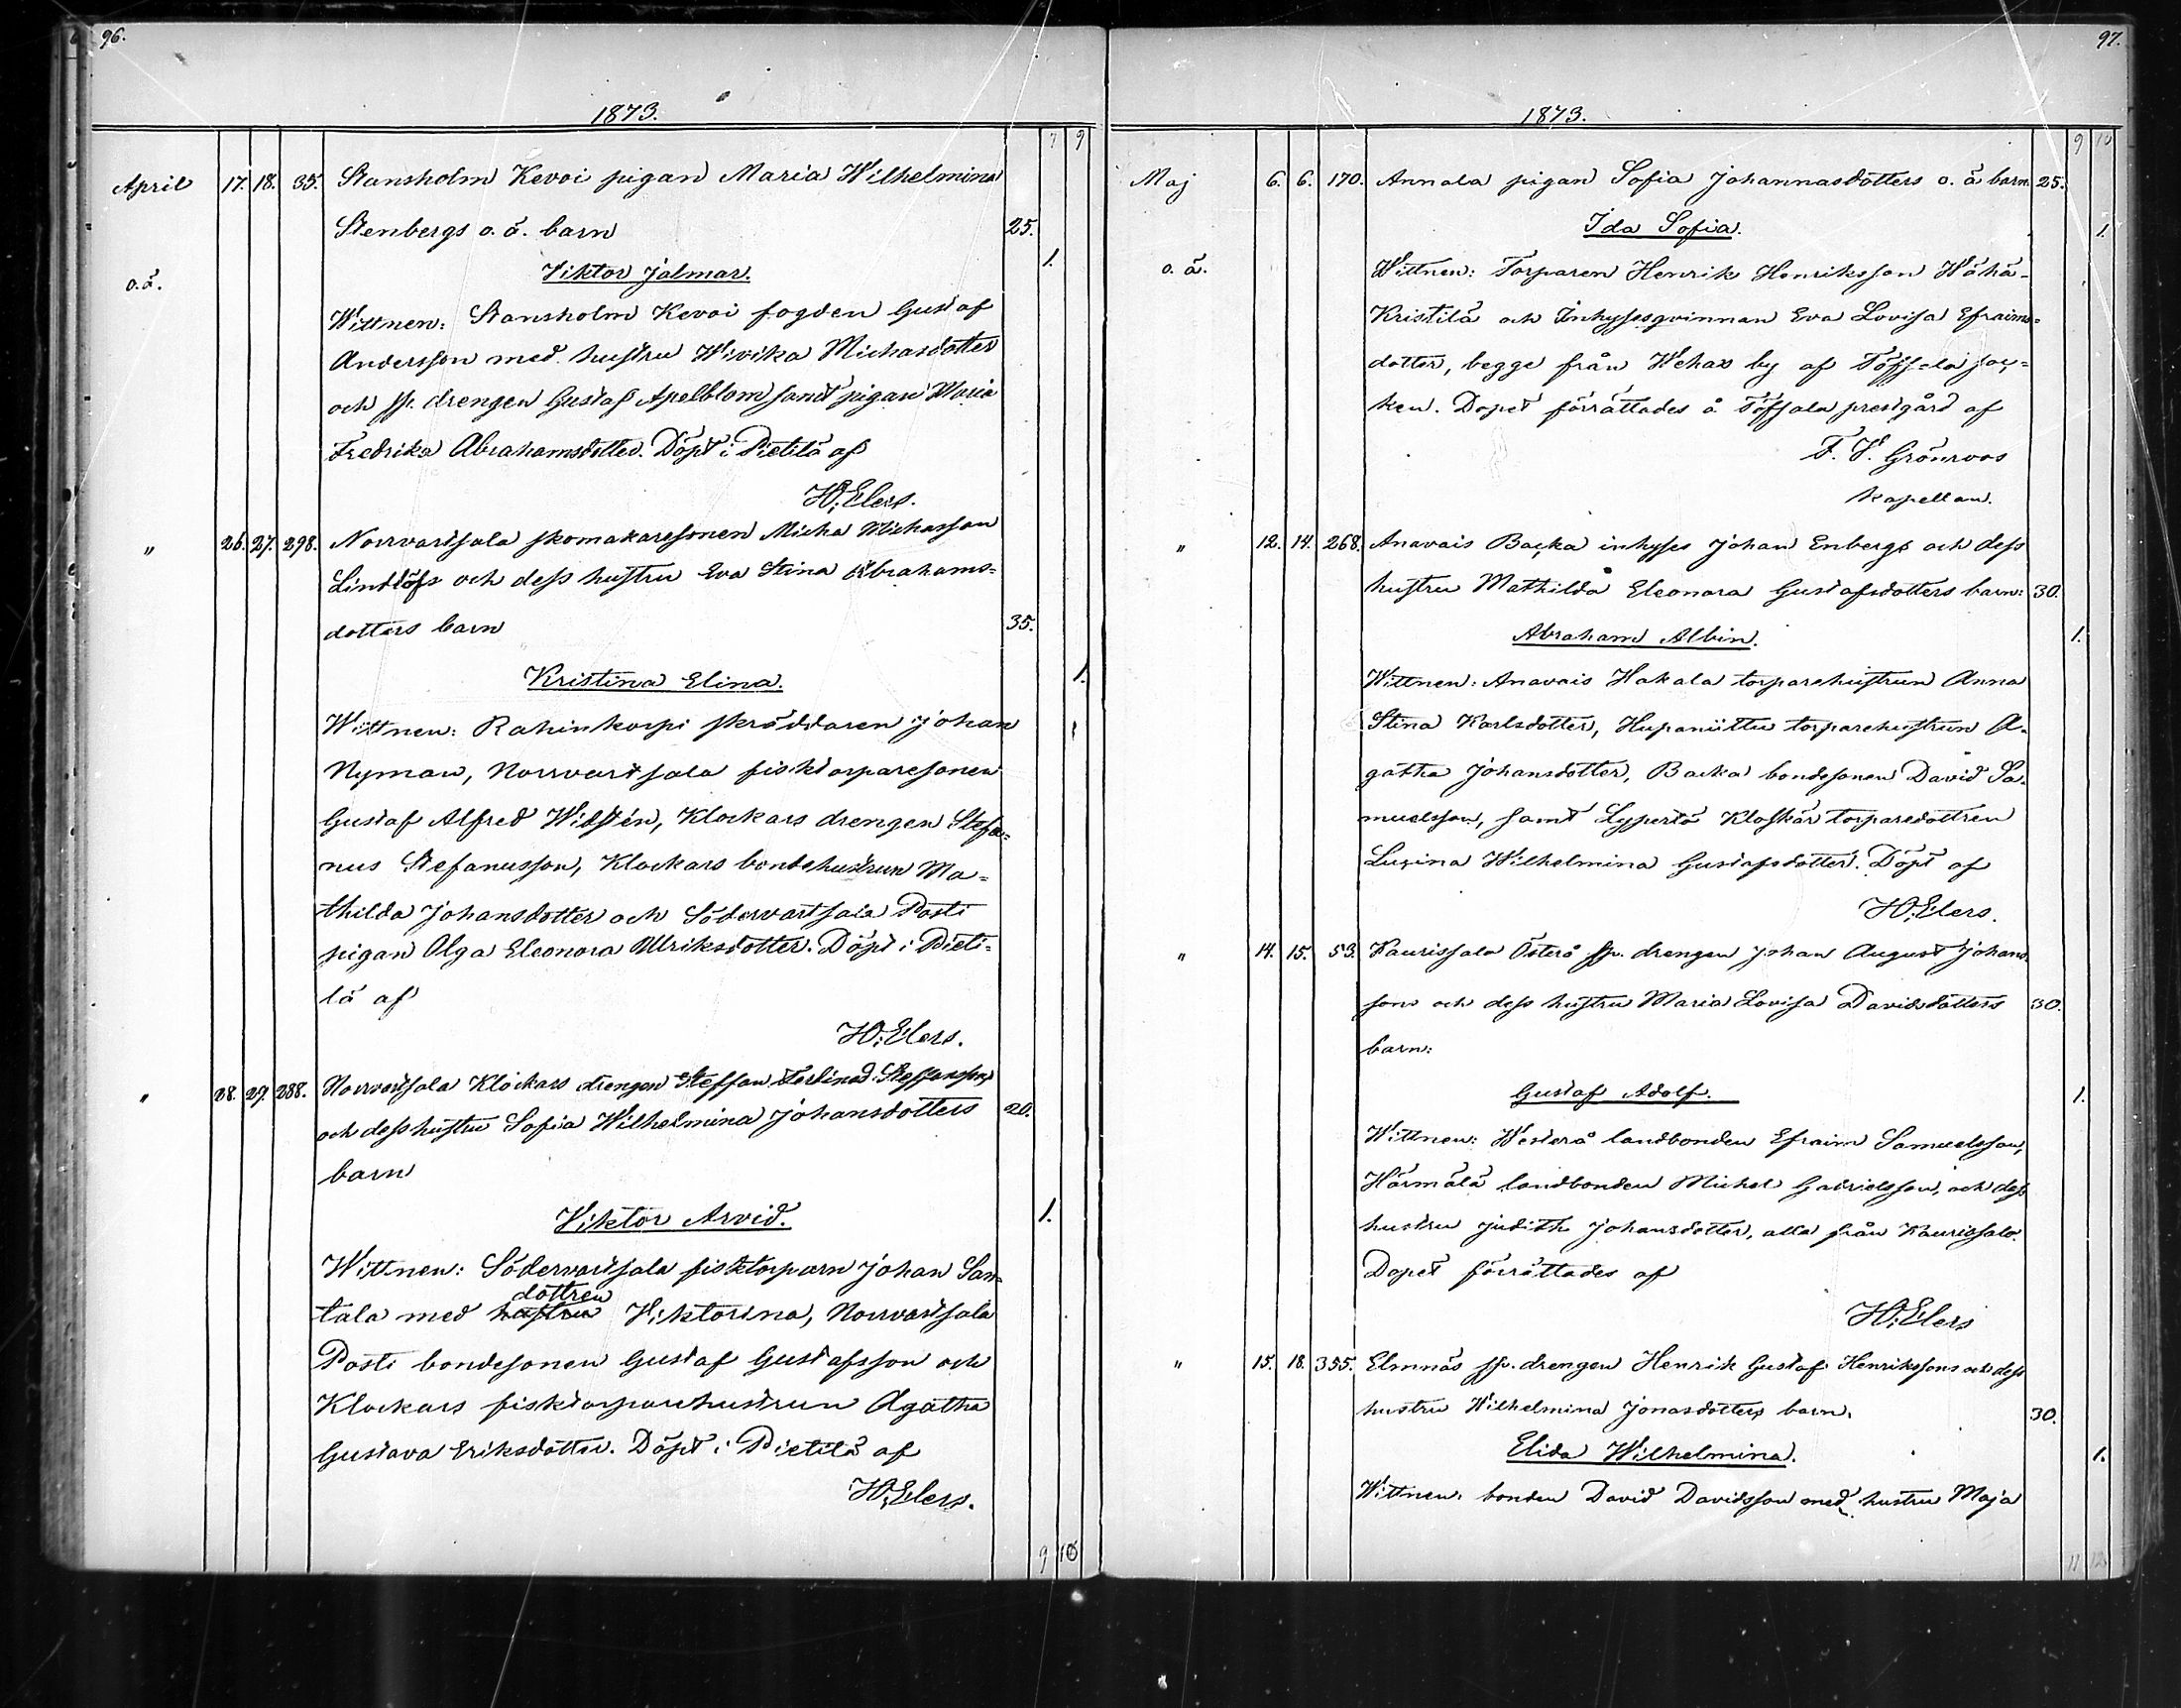 96.
1873.
7 9
April 17. 18. 35. Stansholm Kevoi pigan Maria Wilhelmina
Stenbergs o. ä. barn 25.
Viktor Jalmar. 1.
o. ä.
Wittnen: Stansholm Kevoi fogden Gustaf
Andersson med hustru Wivika Michasdotter
och sp. drengen Gustaf Apelblom samt pigan Maria
Fredrika Abrahamsdotter. Döpt i Pietilä af
H. Elers.
" 26. 27. 298. Norrvartsala skomakaresonen Micha Michasson
Lindlöfs och dess hustru Eva Stina Abrahams=
dotters barn 35.
Kristina Elina. 1.
Wittnen: Rahinkorpi skräddaren Johan
Nyman, Norrvartsala fisktorparesonen
Gustaf Alfred Widstén, Klockars drengen Stefa=
nus Stefanusson, Klockars bondehustrun Ma=
thilda Johansdotter och Södervartsala Posti
pigan Olga Eleonora Ulriksdotter. Döpt i Pieti=
lä af
H. Elers.
" 28. 29. 288. Norrvartsala Klockars drengen Steffan Ferdinad Steffansson
och dess hustru Sofia Wilhelmina Johansdotters 20.
barn
Viktor Arvid. 1.
Wittnen: Södervartsala fisktorparn Johan San=
dottren
tala med hustru Viktorina, Norrvartsala
Posti bondesonen Gustaf Gustafsson och
Klockars fisktorparehustrun Agatha
Gustava Eriksdotter. Döpt i Pietilä af
H. Elers.
9 10
97.
1873.
9 10
Maj 6. 6. 170. Annala pigan Sofia Johannasdotters o. ä. barn 25.
Ida Sofia. 1.
o. ä. Wittnen: Torparen Henrik Henriksson Wähä-
Kristilä och Inhysesqvinnan Eva Lovisa Efraims=
dotter, begge från Wehax by af Töfsala soc=
ken. Dopet förrättades å Töfsala prestgård af
F. W. Grönroos
Kapellan.
" 12. 14. 268. Anavais Backa inhyses Johan Enbergs och dess
hustru Mathilda Eleonora Gustafsdotters barn: 30.
Abraham Albin. 1.
Wittnen: Anavais Hakala torparehustrun Anna
Stina Karlsdotter, Hupaniittu torparehustrun A-
gatha Johansdotter, Backa bondesonen David Sa-
muelsson, samt Lypertö Kloskär torparedottren
Lucina Wilhelmina Gustafsdotter. Döpt af
H. Elers.
" 14. 15. 53. Kaurissala Österå sp. drengen Johan August Johans-
sons och dess hustru Maria Lovisa Davidsdotters 30.
barn:
Gustaf Adolf. 1.
Wittnen: Westerå landbonden Efraim Samuelsson,
Härmälä landbonden Michel Gabrielsson, och dess
hustru Judith Johansdotter, alla från Kaurissalo.
Dopet förrättades af
H. Elers
" 15. 18. 355. Elmnäs sp. drengen Henrik Gustaf Henrikssons och dess
hustru Wilhelmina Jonasdotters barn. 30.
Elida Wilhelmina. 1.
Wittnen: bonden David Davidsson med hustru Maja
11 12